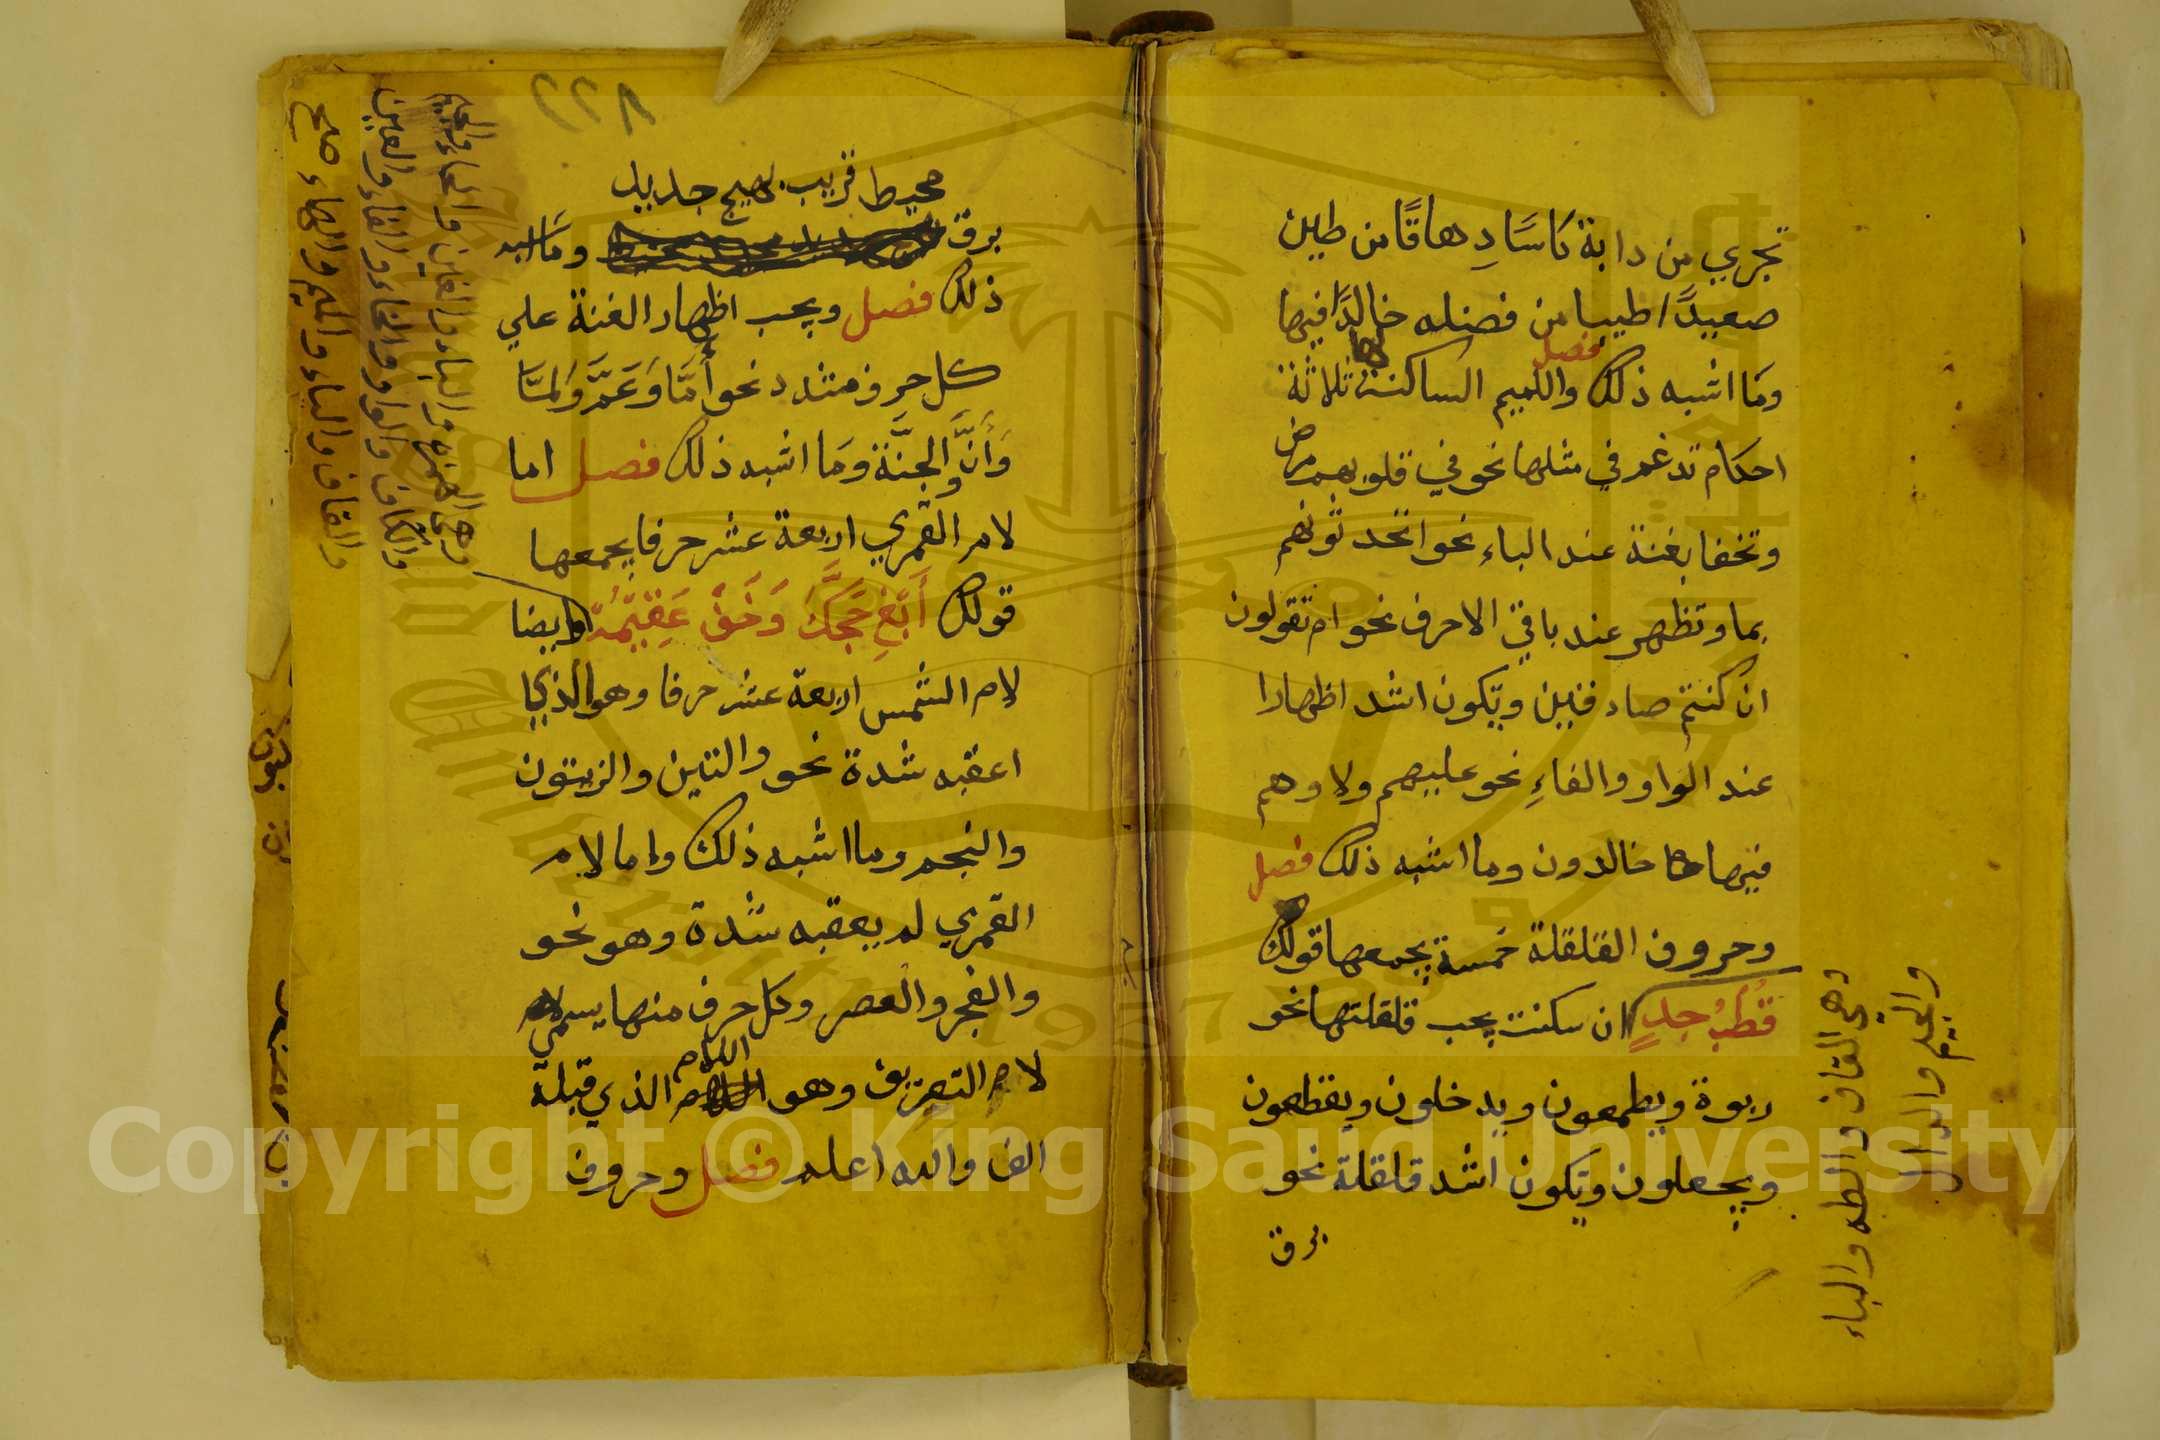 تجري من دابة كاسًا دِهاقًا من طين
صعيدًا طيبا من فضله خالدًا فيها
ومَا اشبه ذلك فصل والميم الساكنة لها ثلاثة
احكام تدغم في مثلها نحو في قلوبهم مرض
وتخفا بغنة عند الباء نحو اتحد ثونهم
بما وتظهر عند باقي الاحرف نحو ام تقولون
ان كنتم صادقين ويكون اشد اظهارا
عند الواو والفاءِ نحو عليهم ولا وهم
فيها خالدون وما اشبه ذلك فصل
وحروف القلقلة خمسة يجمعها قولك
قُطْبُ جدٍ ان سكنت يجب قلقلتها نحو
ربوة ويطمعون ويدخلون ويقطعون
ويجعلون ويكون اشد قلقلة نحو
برق
وهي القاف والطاء والباء
والجيم والدال
١٢٢
محيط قريب بهيج جديد
برق ومَا اشبه
ذلك فصل ويجب اظهار الغنة علي
كل حرف مشدد نحو أمَّا وَعَمَّ وَلمَّا
وَأَنَّ وَالجنَّة ومَا اشبه ذلك فصل اما
لام القمري اربعة عشر حرفا يجمعها
قولك أَبْغِ حَجَّكَ وَخَفْ عَقِيمَهُ وايضا
لام الشمس اربعة عشر حرفا وهو الذي
اعقبه شدة نحو والتين والزيتون
والنجم وما اشبه ذلك واما لام
القمري لم يعقبه شدة وهو نحو
والفجر والعصر وكل حرف منها يسمي
لام التعريف وهو اللام الذي قبله
الف والله اعلم فصل وحروف
وهي الهمزة والباء والغين والحاء والجيم
والكاف والواو والخاء والفاء والعين
والقاف والياء والميم والهاء صح